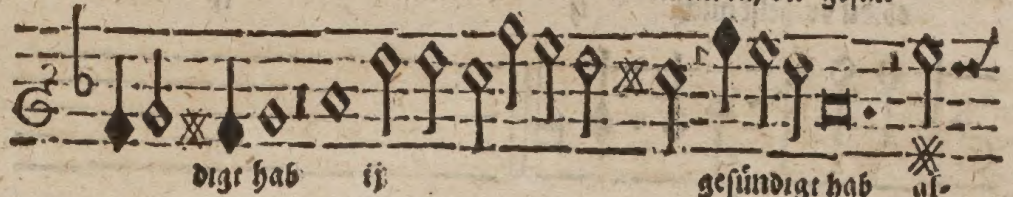 digt hab ij gesündigt hab al-